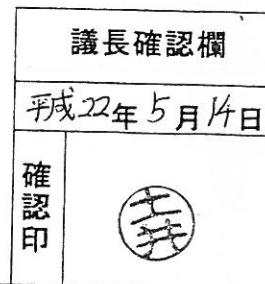 議長確認欄
平成22年5月14日
確認印